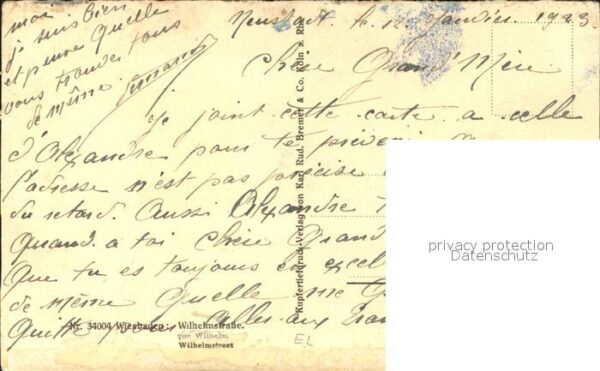 Neustadt, le 12 Janvier 1923.
Chère Grand'Mère
Je joint cette carte a celle
d'Alexandre pour te prévenir
l'adresse n'est pas précise
du retard. Aussi Alexandre
Quand a toi Chère Grand
Que tu es toujours en excel
de même Quelle me
Quitte pour aller aux
moi
je suis bien
et pense Quelle
vous trouver tous
de même.
Fernand
Kupfertiefdruck-Verlag von Karl Rud. Bremer & Co. Köln a. Rh.
Nr. 34004 Wiesbaden: Wilhelmstraße.
rue Wilhelm
Wilhelmstreet
EL
privacy protection
Datenschutz